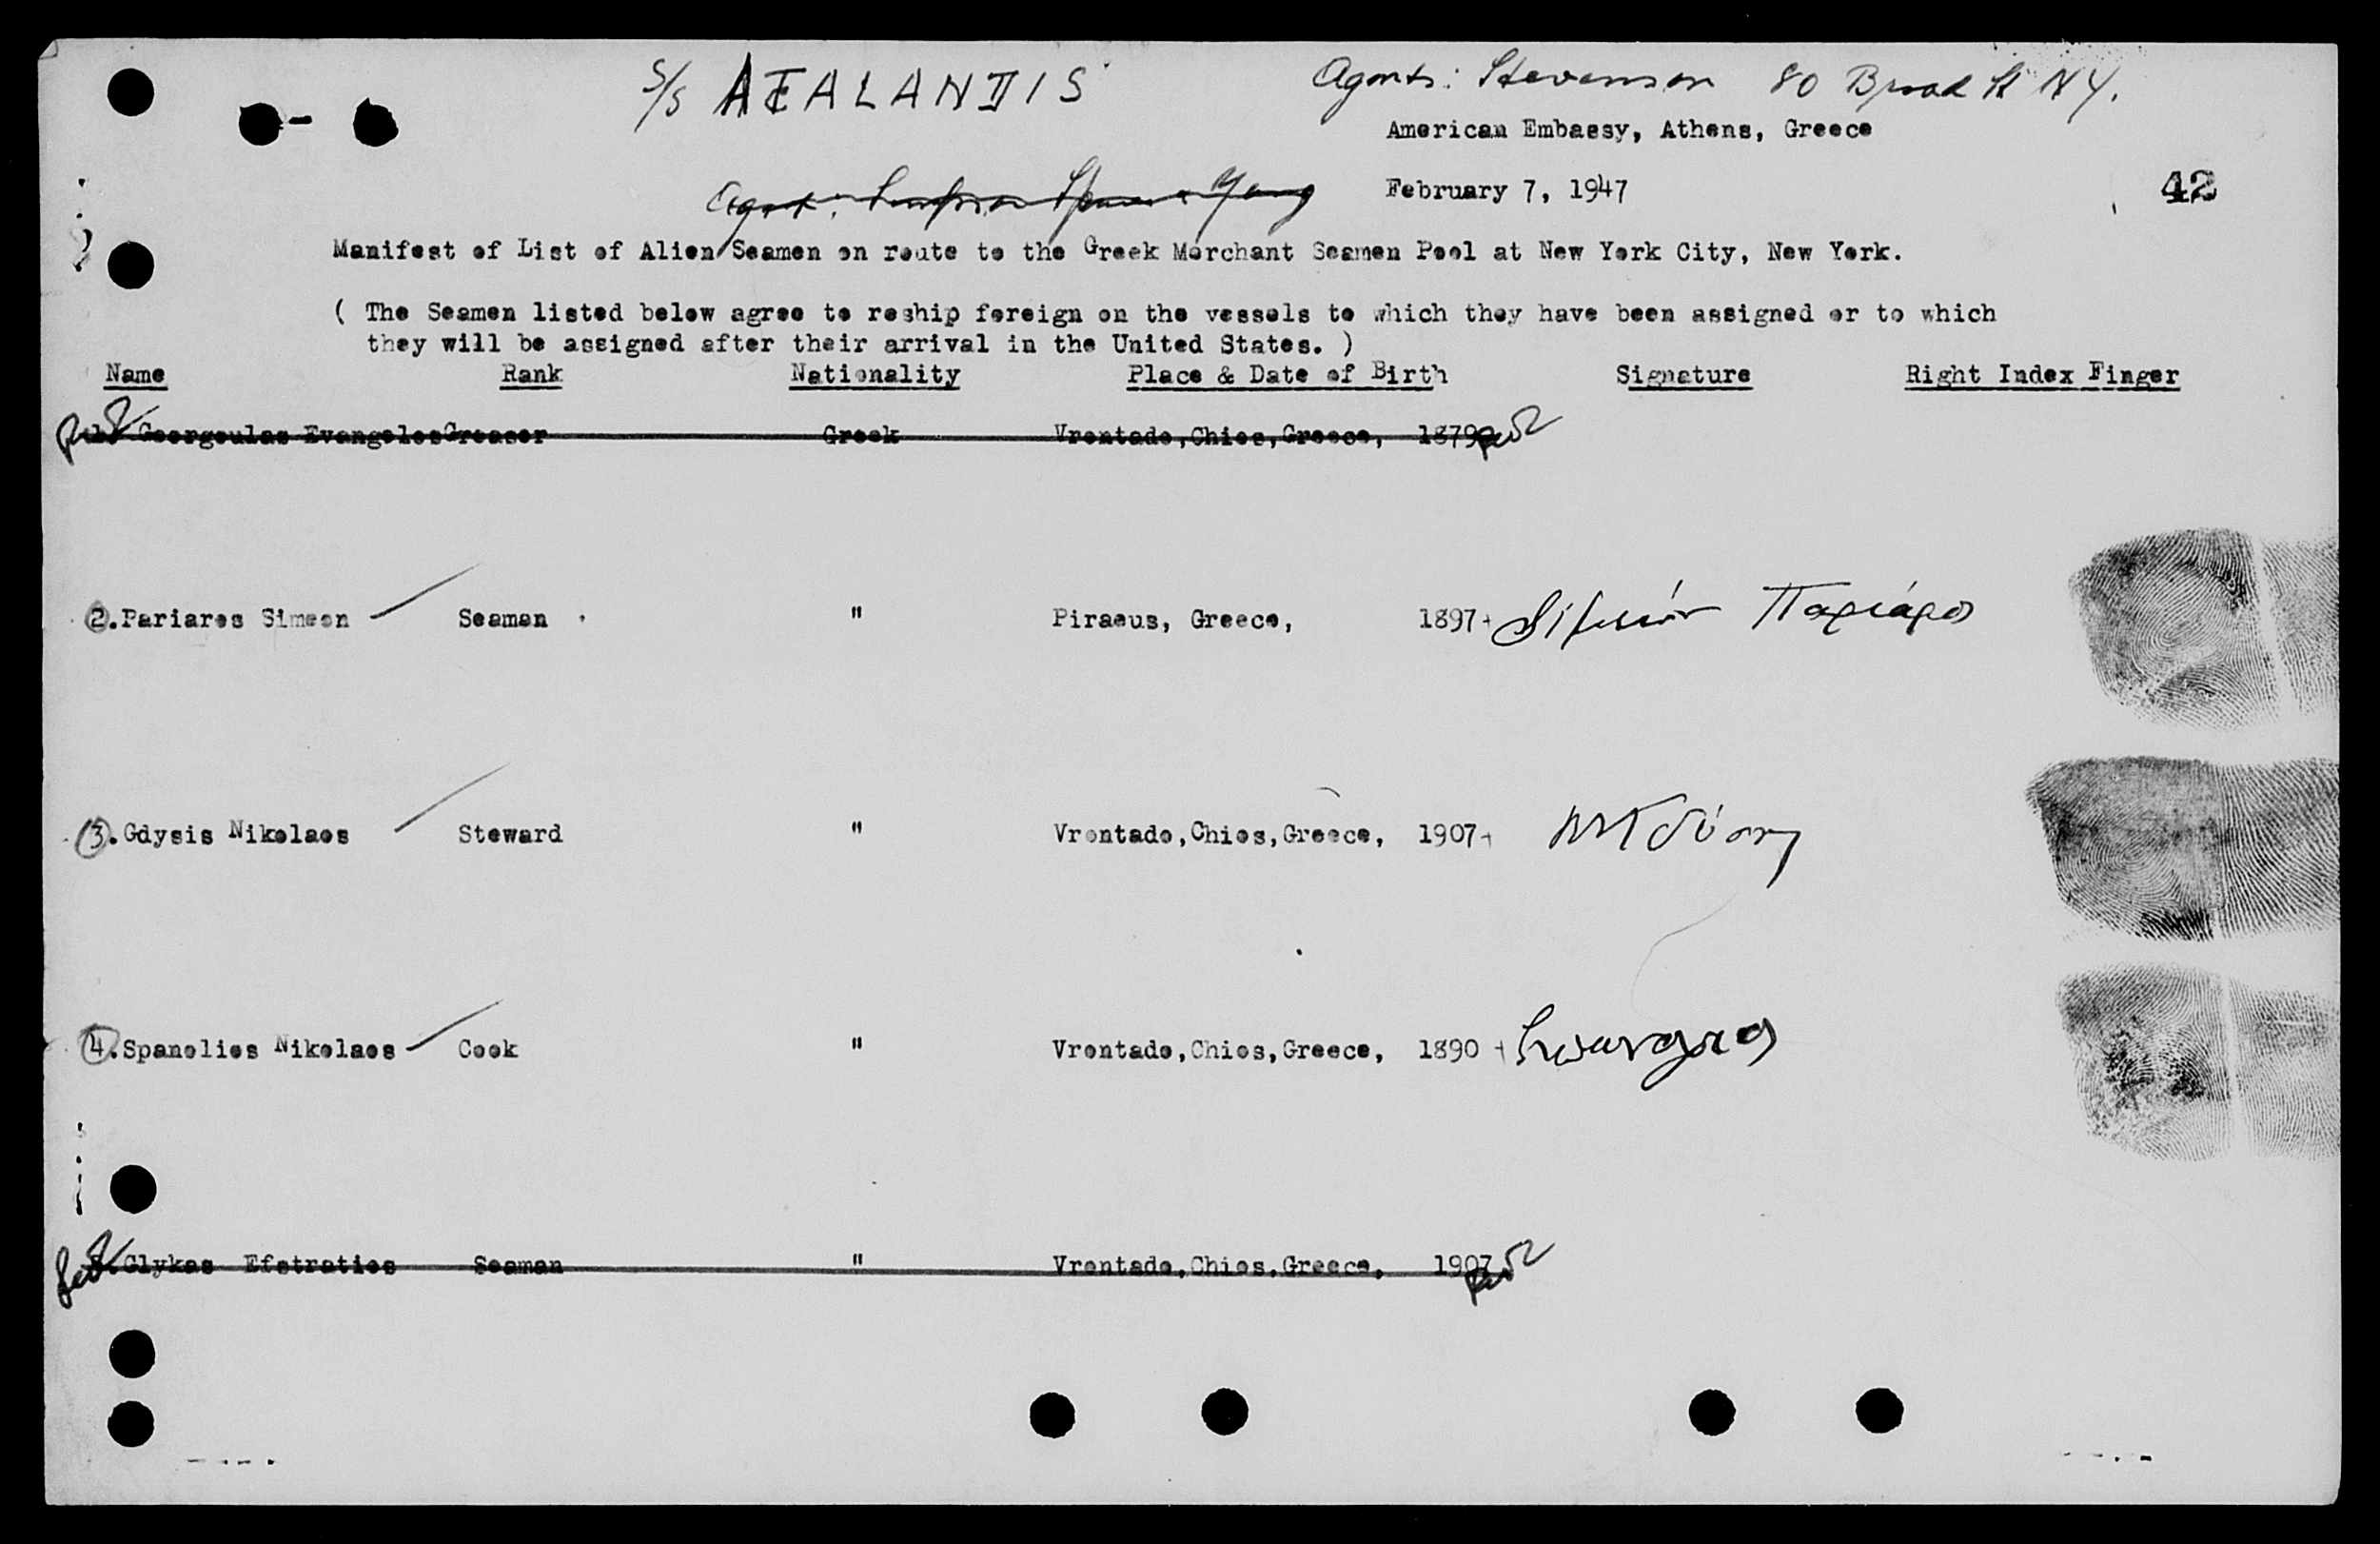 S/S ATALANTIS Agents: Stevenson 80 Broad St N.Y.
American Embassy, Athens, Greece
February 7, 1947 42
Manifest of List of Alien Seamen on route to the Greek Merchant Seamen Pool at New York City, New York.
( The Seamen listed below agree to reship foreign on the vessels to which they have been assigned or to which
they will be assigned after their arrival in the United States. )
Name Rank Nationality Place & Date of Birth Signature Right Index Finger
1. Georgoulas Evangelos Greaser Greek Vrontado, Chios, Greece, 1879
2. Pariaros Simeon Seaman " Piraeus, Greece, 1897 Σιμεών Παριάρος
3. Gdysis Nikolaos Steward " Vrontado, Chios, Greece, 1907 Νικ Γδύσης
4. Spanolios Nikolaos Cook " Vrontado, Chios, Greece, 1890
5. Glykas Efstratios Seaman " Vrontado, Chios, Greece, 1907